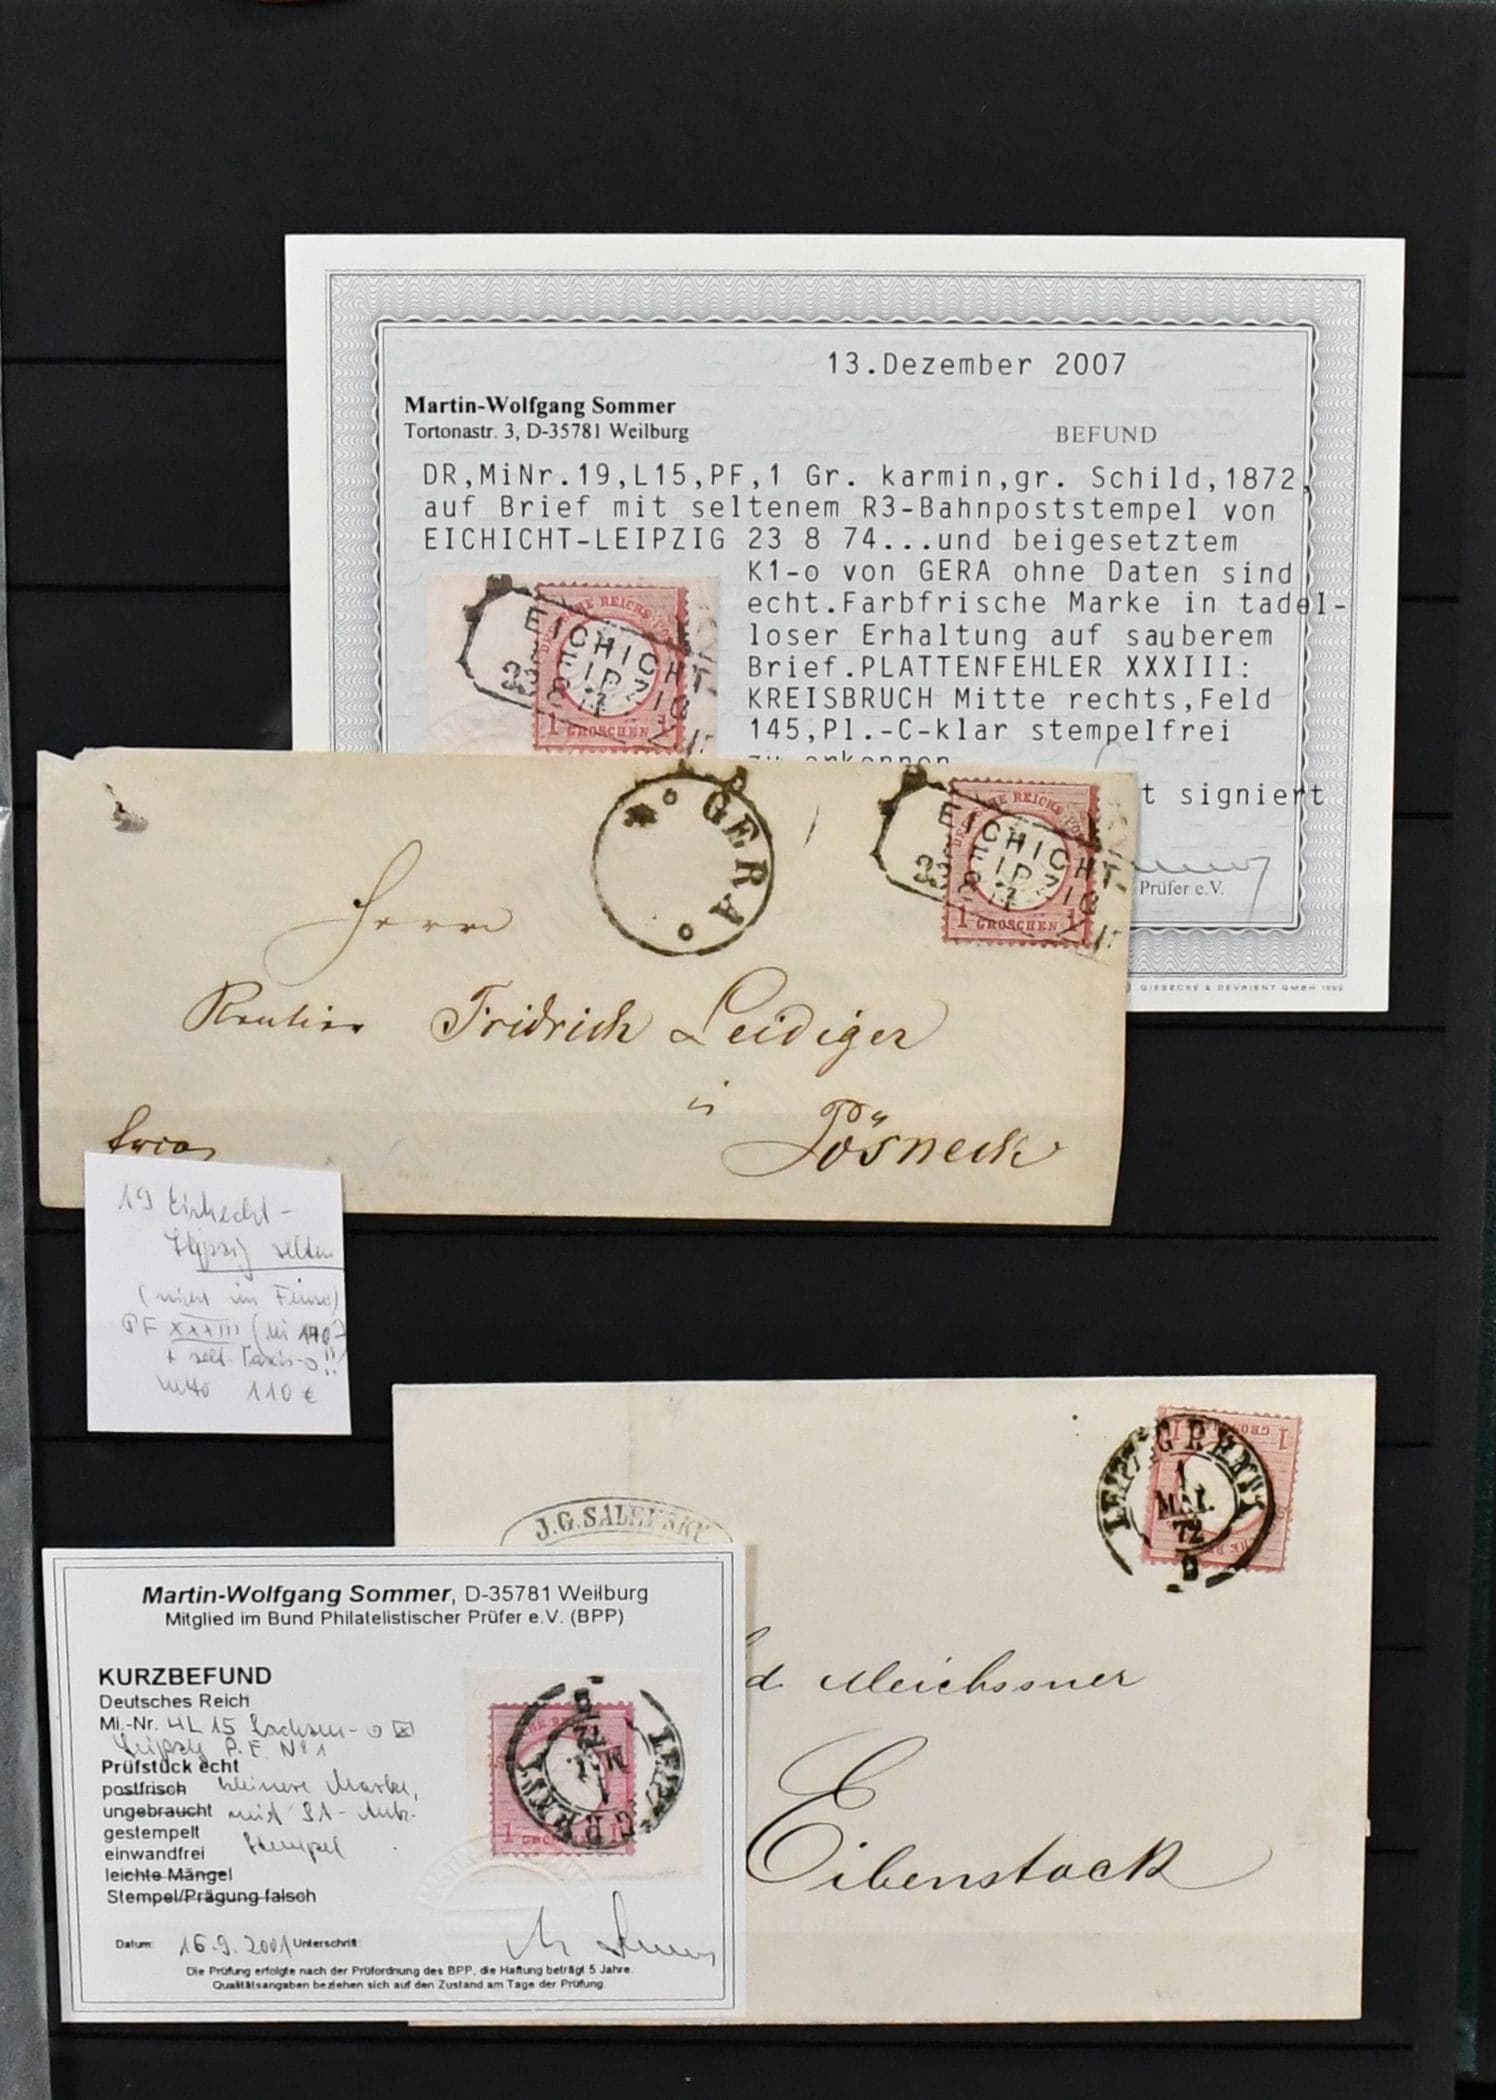 13.Dezember 2007
Martin-Wolfgang Sommer
Tortonastr. 3, D-35781 Weilburg
BEFUND
DR,MiNr.19,L15,PF,1 Gr. karmin,gr. Schild,1872,
auf Brief mit seltenem R3-Bahnpoststempel von
EICHICHT-LEIPZIG 23 8 74...und beigesetztem
K1-o von GERA ohne Daten sind
echt.Farbfrische Marke in tadel-
loser Erhaltung auf sauberem
Brief.PLATTENFEHLER XXXIII:
KREISBRUCH Mitte rechts,Feld
145,Pl.-C-klar stempelfrei
zu erkennen
t signiert
Prüfer e.V.
GIESECKE & DEVRIENT GMBH 1992
EICHICHT-
23 8
1 GROSCHEN
GERA
EICHICHT-
23 8
1 GROSCHEN 1
Herrn
Rentier Fridrich Leidiger
in
Pösneck
19
Leipzig selten
(nicht im
PF XXXIII
netto 110 €
LEIPZIG
1
MAI.
72
J.G.SALEFSKY
d Meichssner
Eibenstock
Martin-Wolfgang Sommer, D-35781 Weilburg
Mitglied im Bund Philatelistischer Prüfer e.V. (BPP)
KURZBEFUND
Deutsches Reich
Mi.-Nr. 4 L 15 Sachsen-o
Leipzig P.E. No 1
Prüfstück echt
postfrisch kleinere Marke,
ungebraucht mit
gestempelt Stempel
einwandfrei
leichte Mängel
Stempel/Prägung falsch
Datum: 16.9.2001 Unterschrift:
Die Prüfung erfolgte nach der Prüfordnung des BPP, die Haftung beträgt 5 Jahre.
Qualitätsangaben beziehen sich auf den Zustand am Tage der Prüfung.